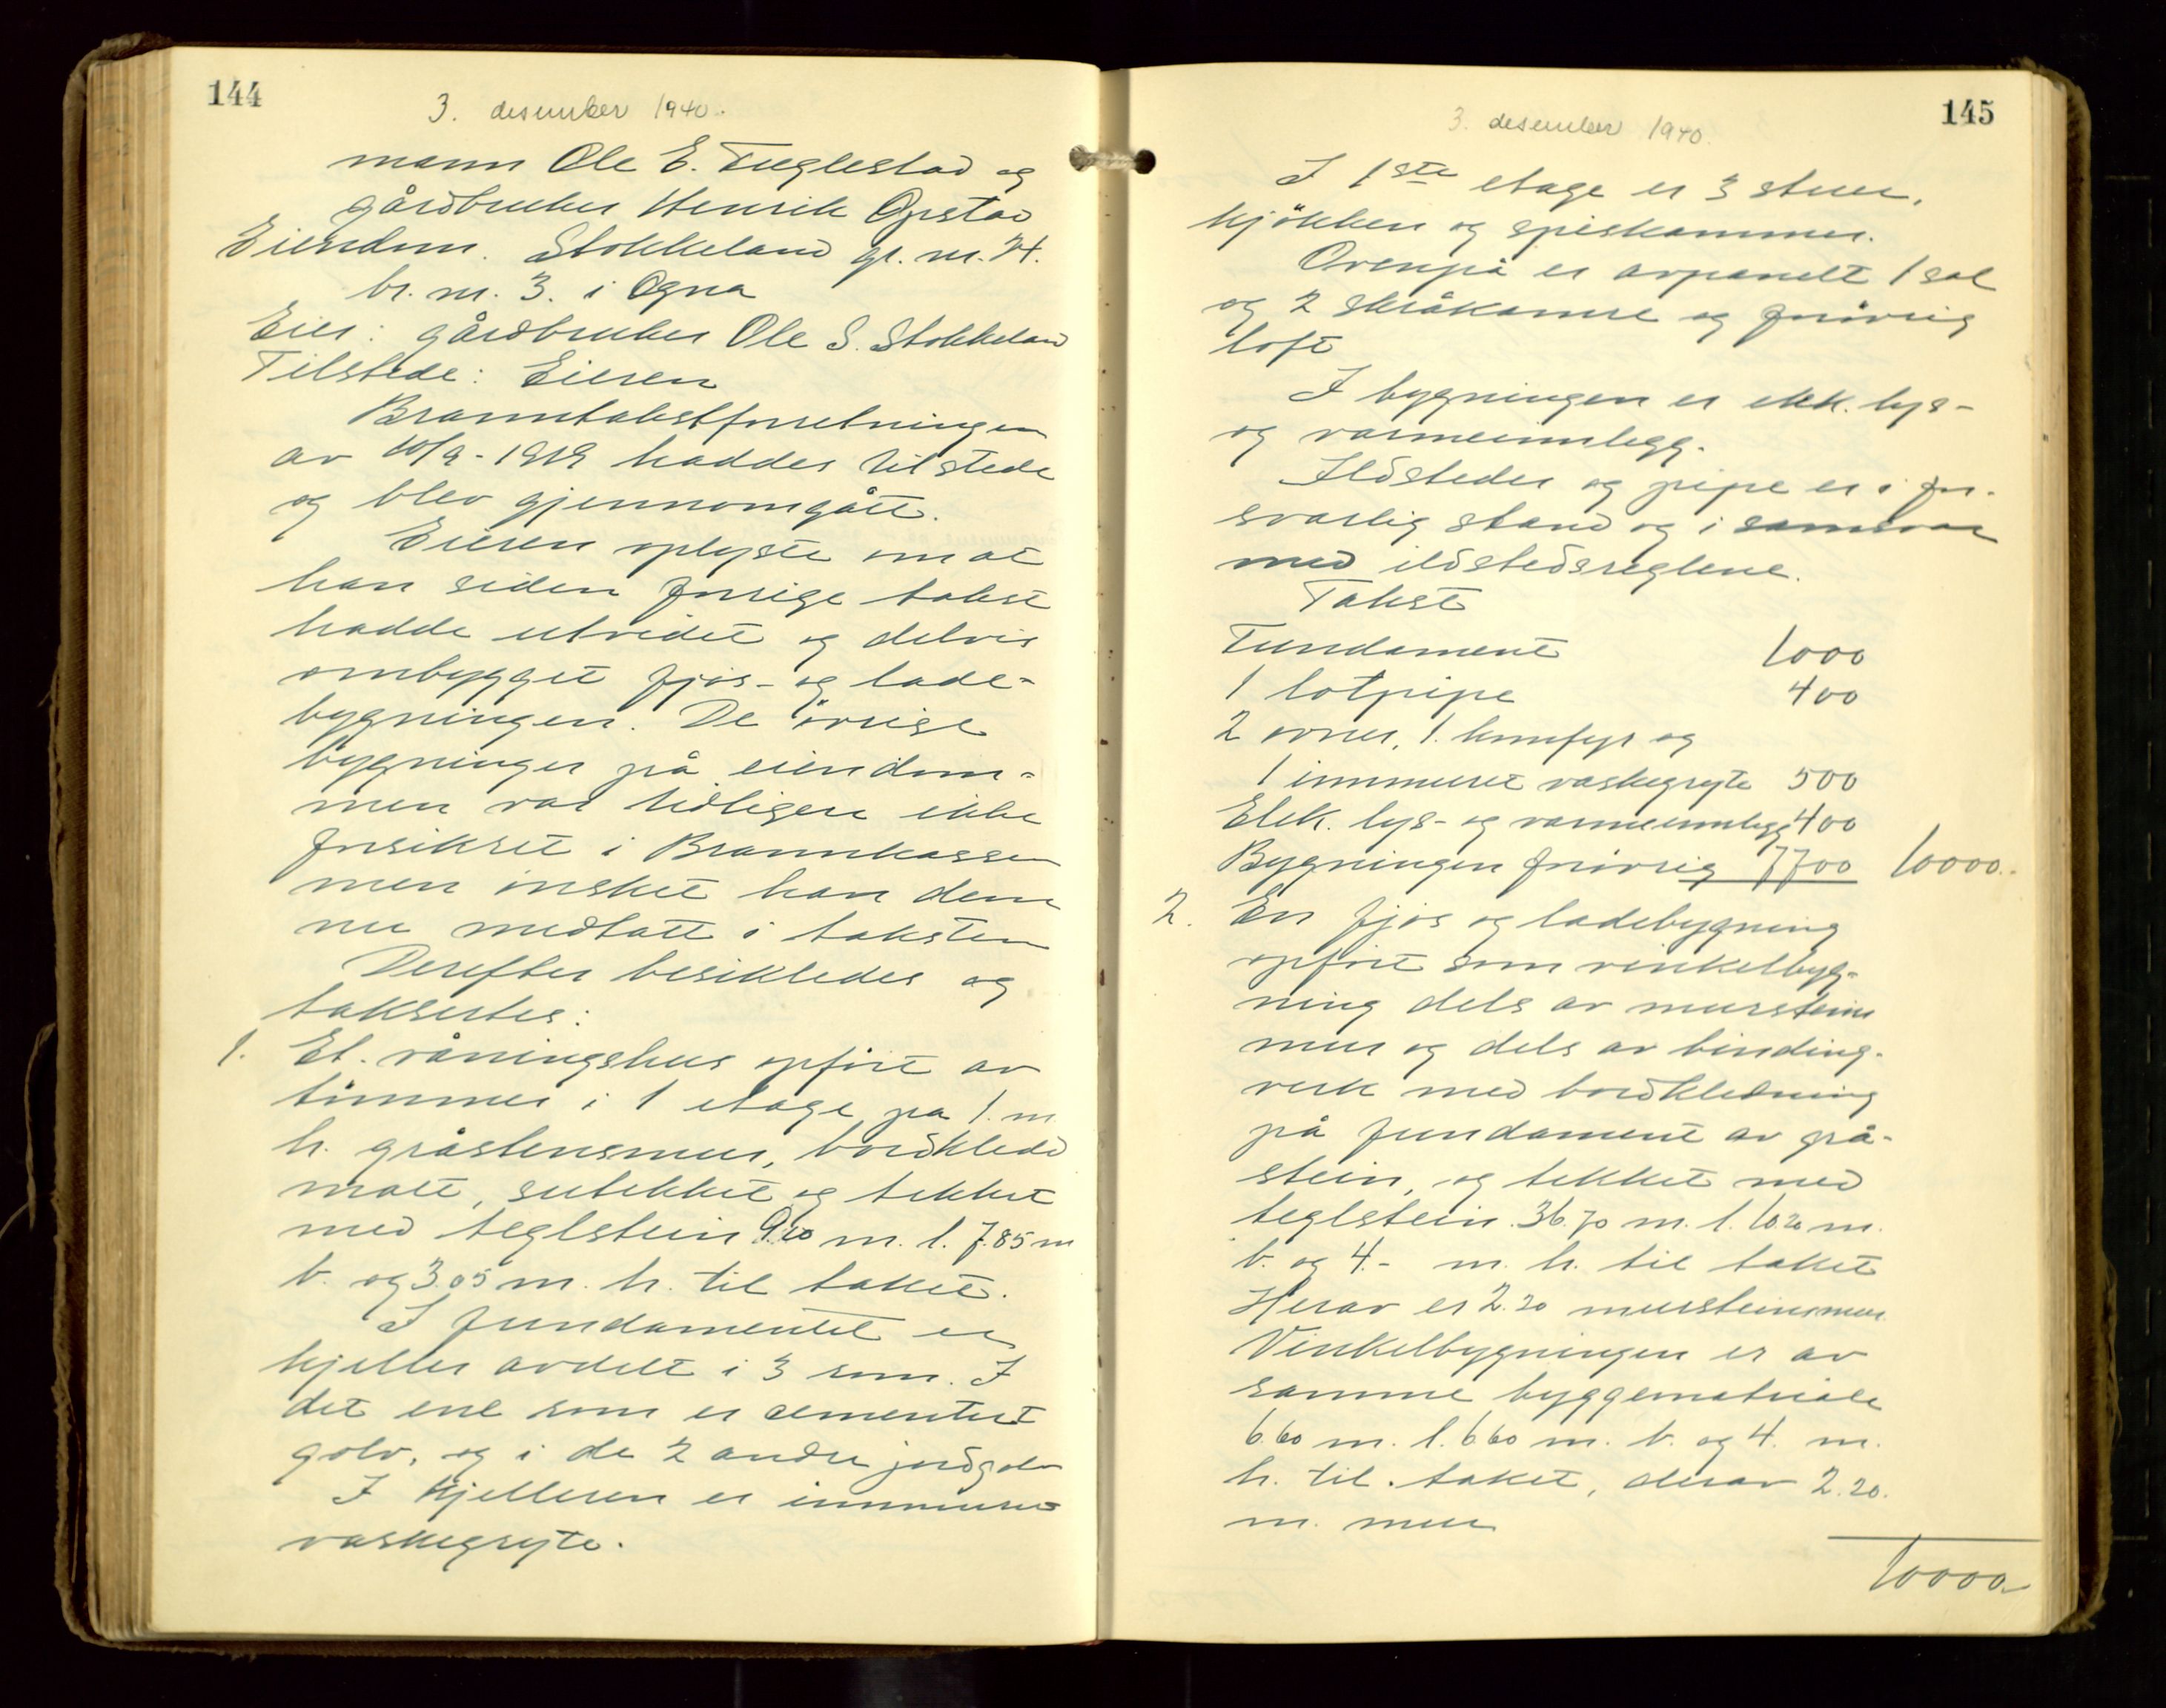 144
3. desember 1940.
mann Ole E. Fuglestad og
gårdbruker Henrik Opstad
Eiendom. Stokkeland gr. nr. 24.
br. nr. 3. i Ogna
Eier: gårdbruker Ole S. Stokkeland
Tilstede: Eieren
Branntakstforretningen
av 10/9-1919 haddes tilstede
og blev gjennomgått.
Eieren oplyste om at
han siden forrige takst
hadde utvidet og delvis
ombygget fjøs- og lade-
bygningen. De øvrige
bygninger på eiendom-
men var tidligere ikke
forsikret i Brannkassen
men ønsket han dem
nu medtatt i taksten
Derefter besiktledes og
taksertes:
1. Et. våningshus opført av
tømmer i 1 etage på 1. m
h. gråstensmur, bordkledd
malt, sutekket og tekket
med teglstein 9.10 m. l. 7.85 m
b. og 3.05 m. h. til taket.
I fundamentet er
kjeller avdelt i 3 rom. I
det ene rom er cementert
golv, og i de 2 andre jordgolv
I kjelleren er innmuret
vaskegryte.
145
3. desember 1940.
I 1ste etage er 3 stuer,
kjøkken og spiskammer.
Ovenpå er avpanelt 1 sal
og 2 skråkamre og forøvrig
loft
I bygningen er elek. lys-
og varmeinnlegg.
Ildsteder og pipe er i for-
svarlig stand og i samsvar
med ildstedsreglene.
Takst
Fundament 1000
1 løtpipe 400
2 ovner, 1. komfyr og
1 innmuret vaskegryte 500
Elek. lys- og varmeinnlegg 400
Bygningen forøvrig 7700 10000.-
2. En fjøs og ladebygning
opført som vinkelbyg-
ning dels av murstein
mur og dels av binding-
verk med bordkledning
på fundament av grå-
stein, og tekket med
teglstein. 36.70 m. l. 10.20 m.
b. og 4.- m. h. til taket
Herav er 2.20 mursteinsmur.
Vinkelbygningen er av
samme byggemateriale
6.60 m. l. 6.60 m. b. og 4. m.
h. til taket, derav 2.20.
m. mur
10000.-